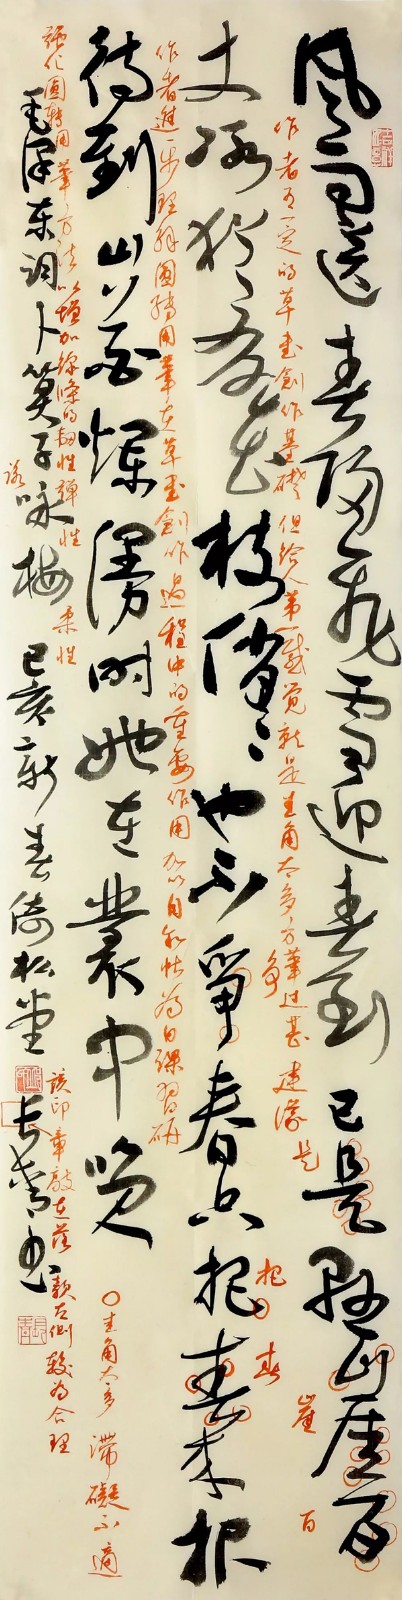 風雨送春歸飛雪迎春到已是懸崖百
作者有一定的草書創作基礎但給人第一感覺就是圭角太多方筆過甚建議
是
崖
百
丈冰猶有花枝俏俏也不爭春只把春來報
爭
把
春
作者進一步理解圓轉用筆在草書創作過程中的重要作用加以自敘帖為日課習研
待到山花爛漫時她在叢中笑
〇圭角太多滯礙不適
強化圓轉用筆方法以增加線條的韌性彈性柔性
毛澤東詞卜算子咏梅己亥新春倚松堂長青書
詠
該印章敲在落款左側較為合理